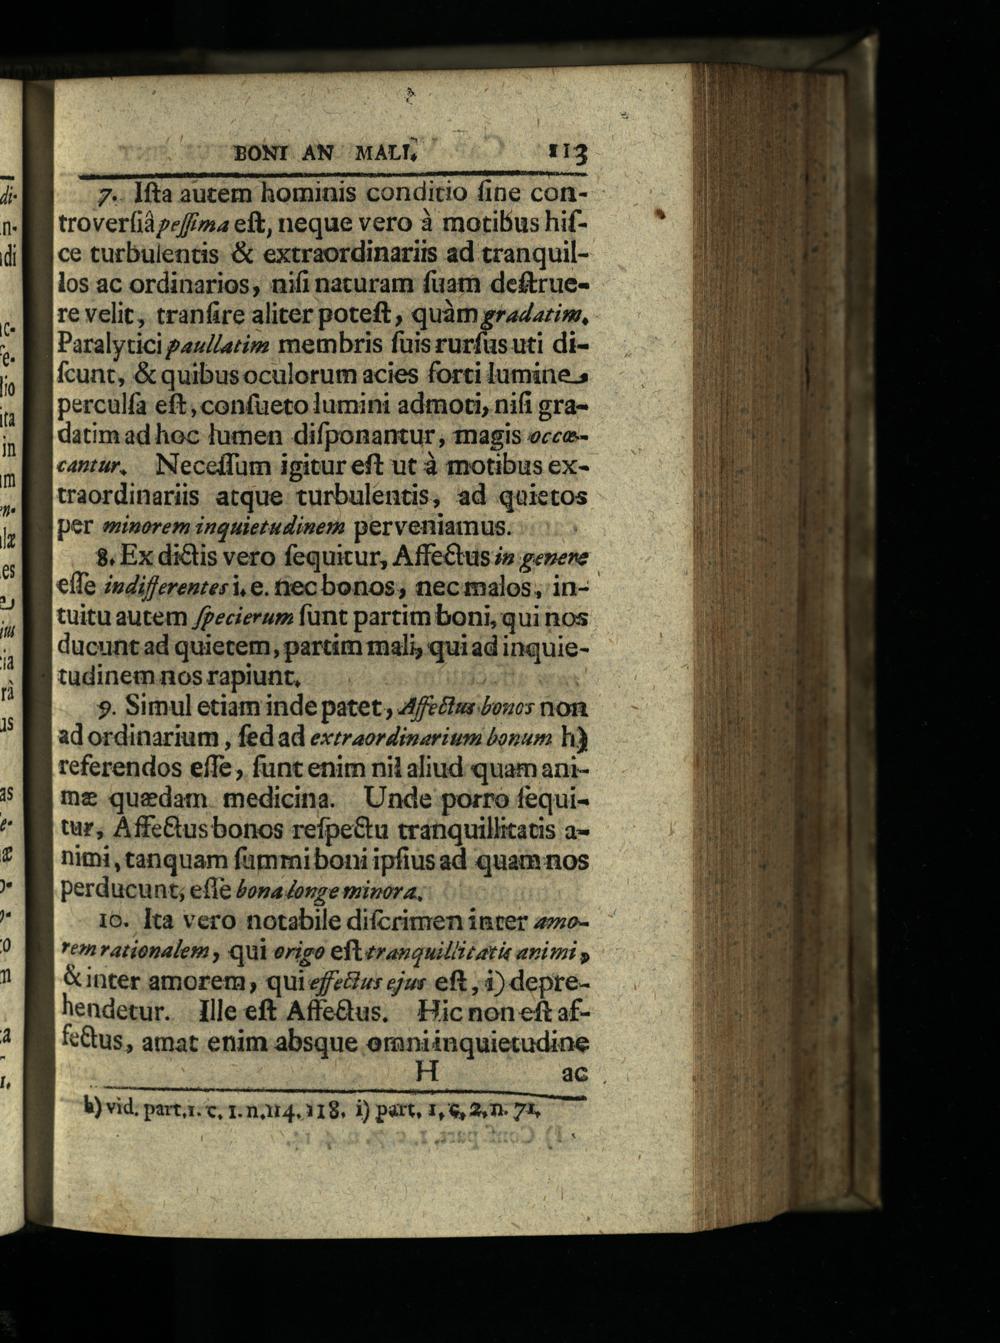 BONI AN MALI. 113
7. Iſta autem hominis conditio ſine con-
troverſiâ peſſima eſt, neque vero à motibus hiſ-
ce turbulentis & extraordinariis ad tranquil-
los ac ordinarios, niſi naturam ſuam deſtrue-
re velit, tranſire aliter poteſt, quàm gradatim.
Paralytici paullatim membris ſuis rurſus uti di-
ſcunt, & quibus oculorum acies forti lumine
perculſa eſt, conſueto lumini admoti, niſi gra-
datim ad hoc lumen diſponantur, magis occœ-
cantur. Neceſſum igitur eſt ut à motibus ex-
traordinariis atque turbulentis, ad quietos
per minorem inquietudinem perveniamus.
8. Ex dictis vero ſequitur, Affectus in genere
eſſe indifferentes i. e. nec bonos, nec malos, in-
tuitu autem ſpecierum ſunt partim boni, qui nos
ducunt ad quietem, partim mali, qui ad inquie-
tudinem nos rapiunt.
9. Simul etiam inde patet, Affectus bonos non
ad ordinarium, ſed ad extraordinarium bonum h)
referendos eſſe, ſunt enim nil aliud quam ani-
mæ quædam medicina. Unde porro ſequi-
tur, Affectus bonos reſpectu tranquillitatis a-
nimi, tanquam ſummi boni ipſius ad quam nos
perducunt, eſſe bona longe minora.
10. Ita vero notabile diſcrimen inter amo-
rem rationalem, qui origo eſt tranquillitatis animi,
& inter amorem, qui effectus ejus eſt, i) depre-
hendetur. Ille eſt Affectus. Hic non eſt af-
fectus, amat enim absque omni inquietudine
H ac
h) vid. part. 1. c. 1. n. 114. 118. i) part. 1. c. 2. n. 71.